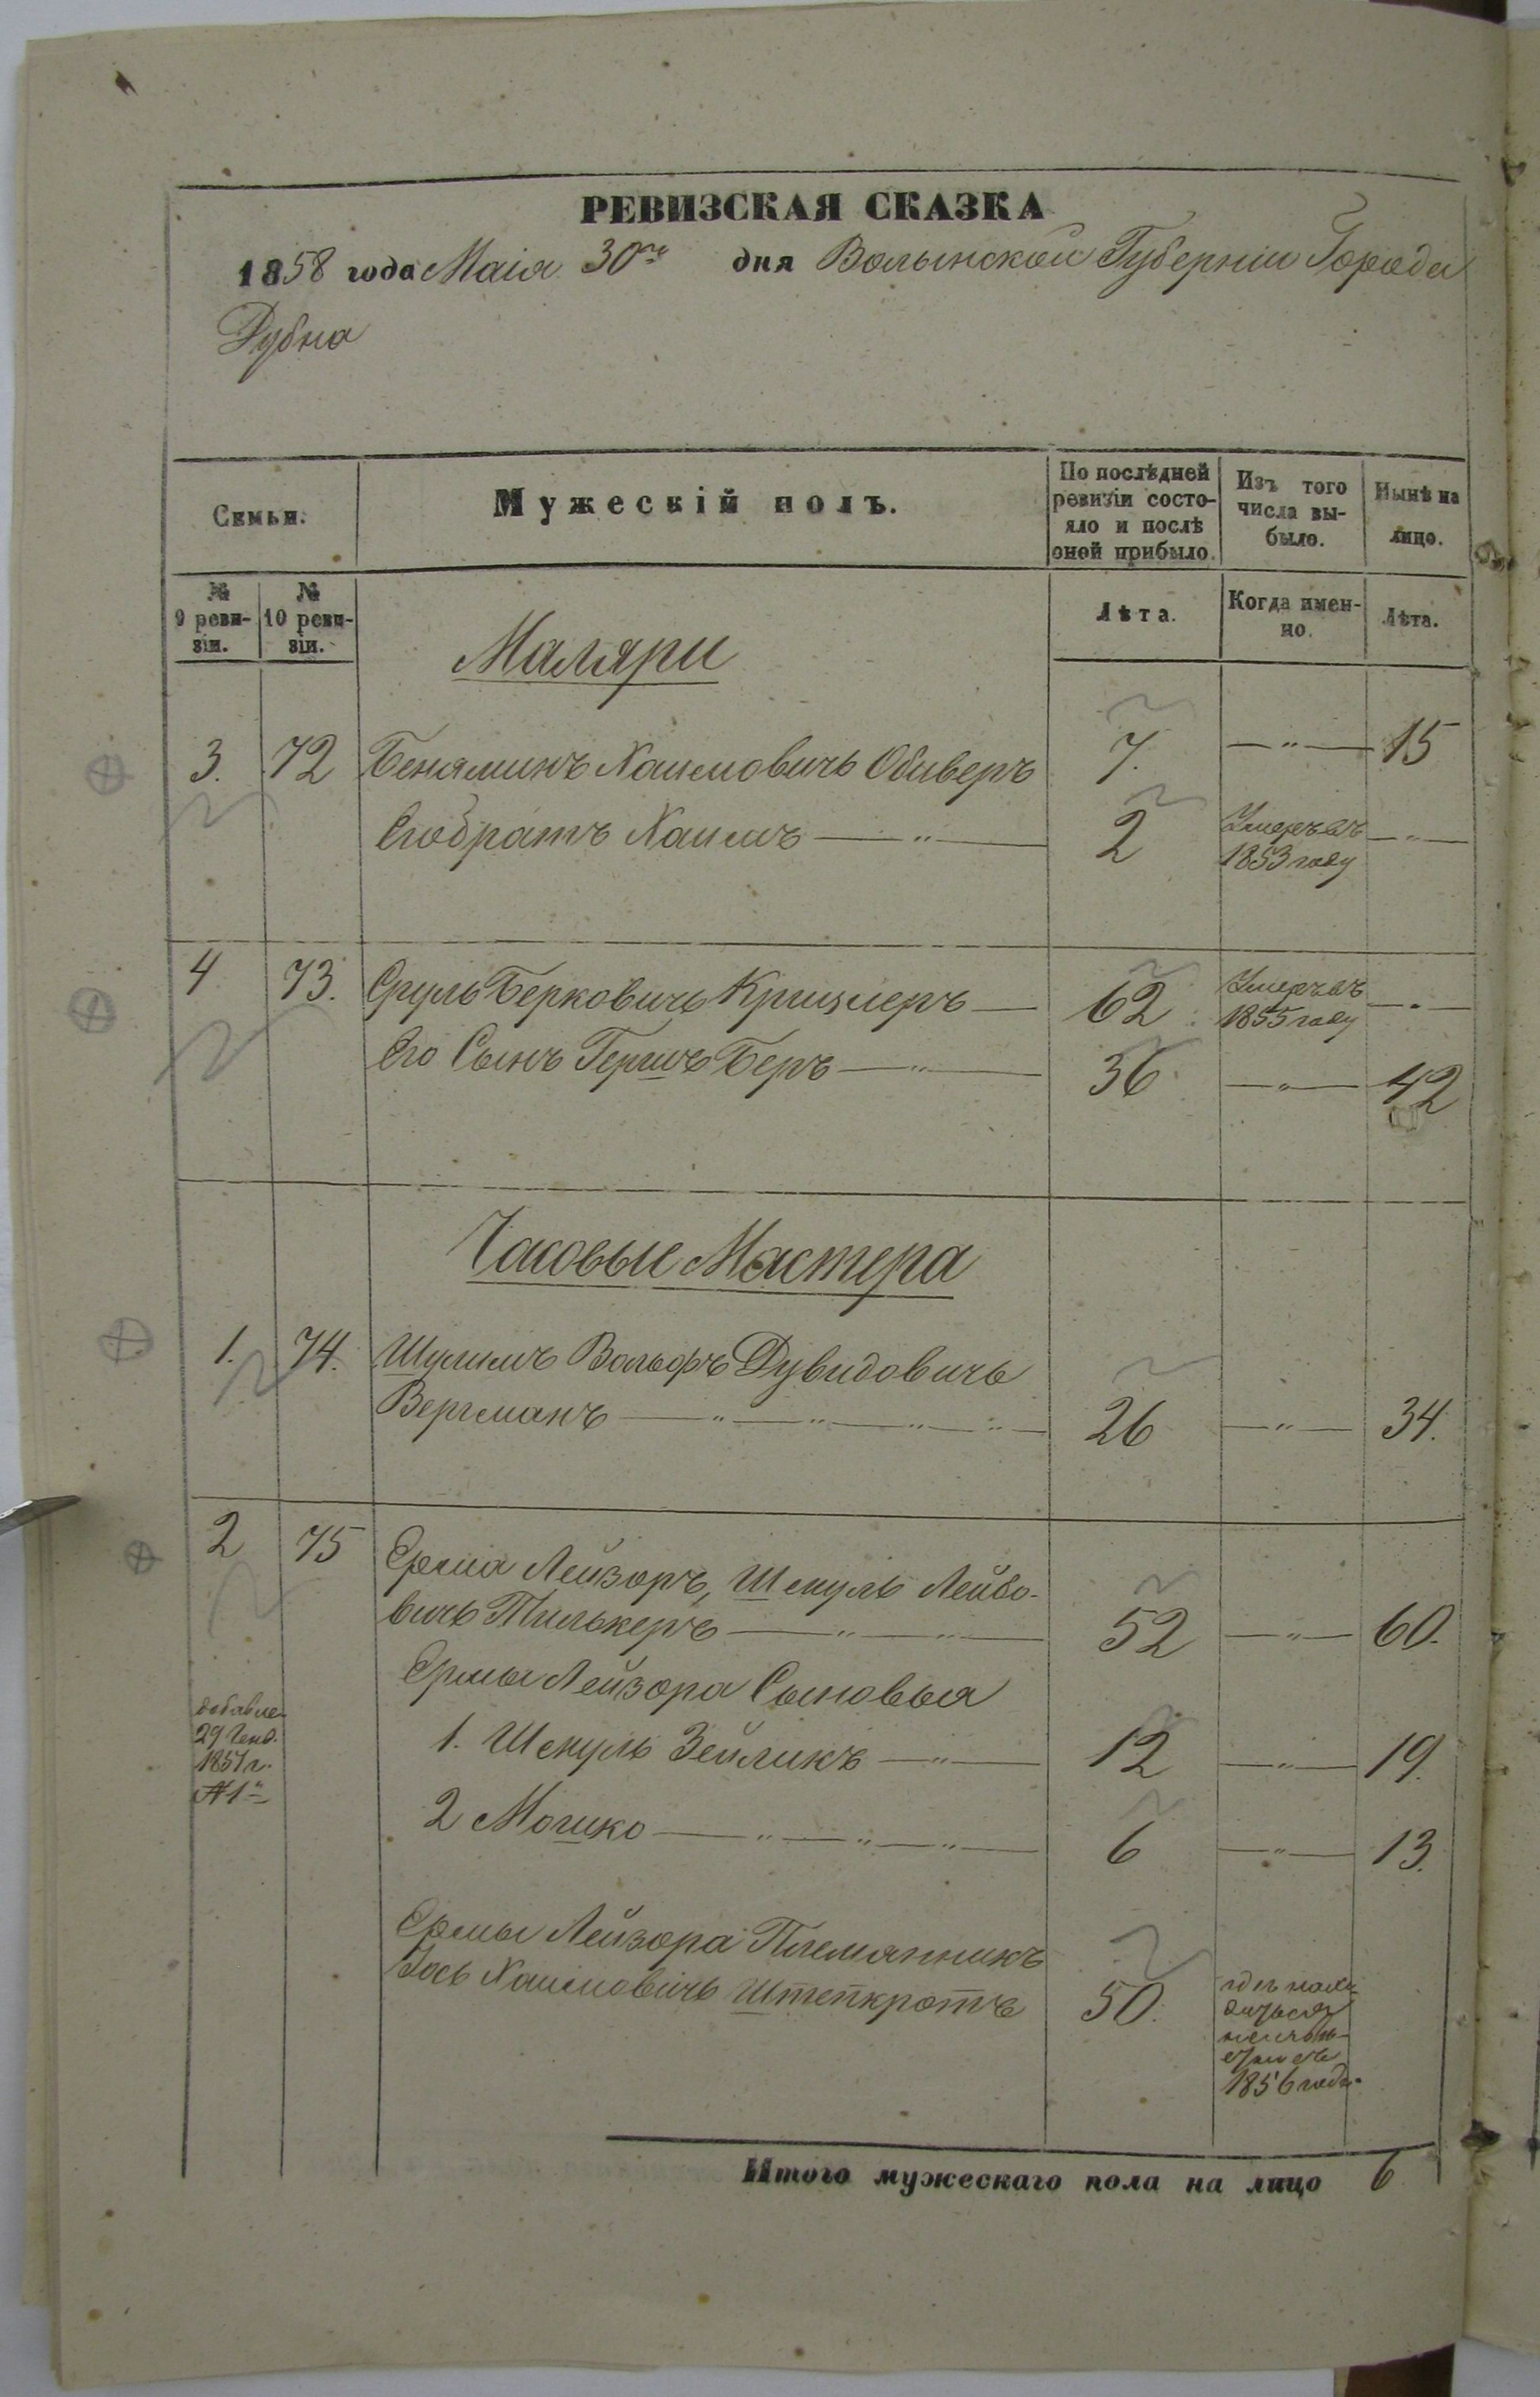 РЕВИЗСКАЯ СКАЗКА
1858 года Маія 30го дня Волынской Губерніи Города
Дубна
Семьи.
Мужескій полъ.
По послѣдней
ревизіи состо-
яло и послѣ
оней прибыло.
Изъ того
числа вы-
было.
Нынѣ на
лицо.
№
9 реви-
зіи.
№
10 реви-
зіи.
Лѣта.
Когда имен-
но.
Лѣта.
Маляри
3. 72 Беняминъ Хаимовичь Обиверъ 7. —〃— 15
Егобратъ Хаимъ —〃— 2 Умеръ въ —〃—
1853 году
4 73. Сруль Берковичь Крицмеръ — 62 Умеръ въ —〃—
1855 году
Его Сынъ Гершъ Беръ —〃— 36 —〃— 42
Часовые Мастера
1. 74. Шулимъ Вольфъ Дувидовичь
Вергманъ —〃—〃—〃—〃— 26 —〃— 34.
2 75 Срма Лейзоръ, Шмуль Лейбо-
вичь Тилькеръ —〃—〃— 52 —〃— 60.
Срмы Лейзора Сыновья
добавле.
29 Генв.
1851 г.
№ 1й
1. Шмуль Зейликъ —〃— 12 —〃— 19.
2 Мошко —〃—〃—〃— 6 —〃— 13.
Срмы Лейзора Племянникъ
Іось Хаимовичь Штепкротъ 50.
1856 года
Итого мужескаго пола на лицо 6